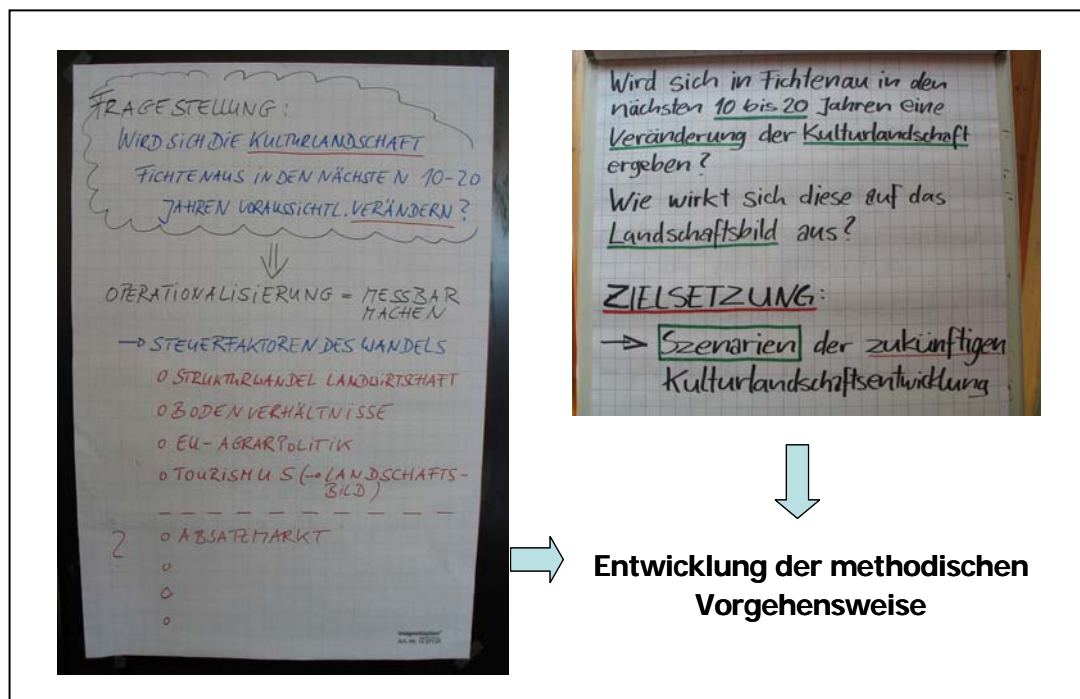 FRAGESTELLUNG:
WIRD SICH DIE KULTURLANDSCHAFT
FICHTENAUS IN DEN NÄCHSTEN 10-20
JAHREN VORAUSSICHTL. VERÄNDERN?
OPERATIONALISIERUNG = MESSBAR
MACHEN
→ STEUERFAKTOREN DES WANDELS
o STRUKTURWANDEL LANDWIRTSCHAFT
o BODENVERHÄLTNISSE
o EU-AGRARPOLITIK
o TOURISMUS (→ LANDSCHAFTS-
BILD)
? o ABSATZMARKT
o
o
o
magnetoplan
Wird sich in Fichtenau in den
nächsten 10 bis 20 Jahren eine
Veränderung der Kulturlandschaft
ergeben?
Wie wirkt sich diese auf das
Landschaftsbild aus?
ZIELSETZUNG:
→ Szenarien der zukünftigen
Kulturlandschaftsentwicklung
Entwicklung der methodischen
Vorgehensweise